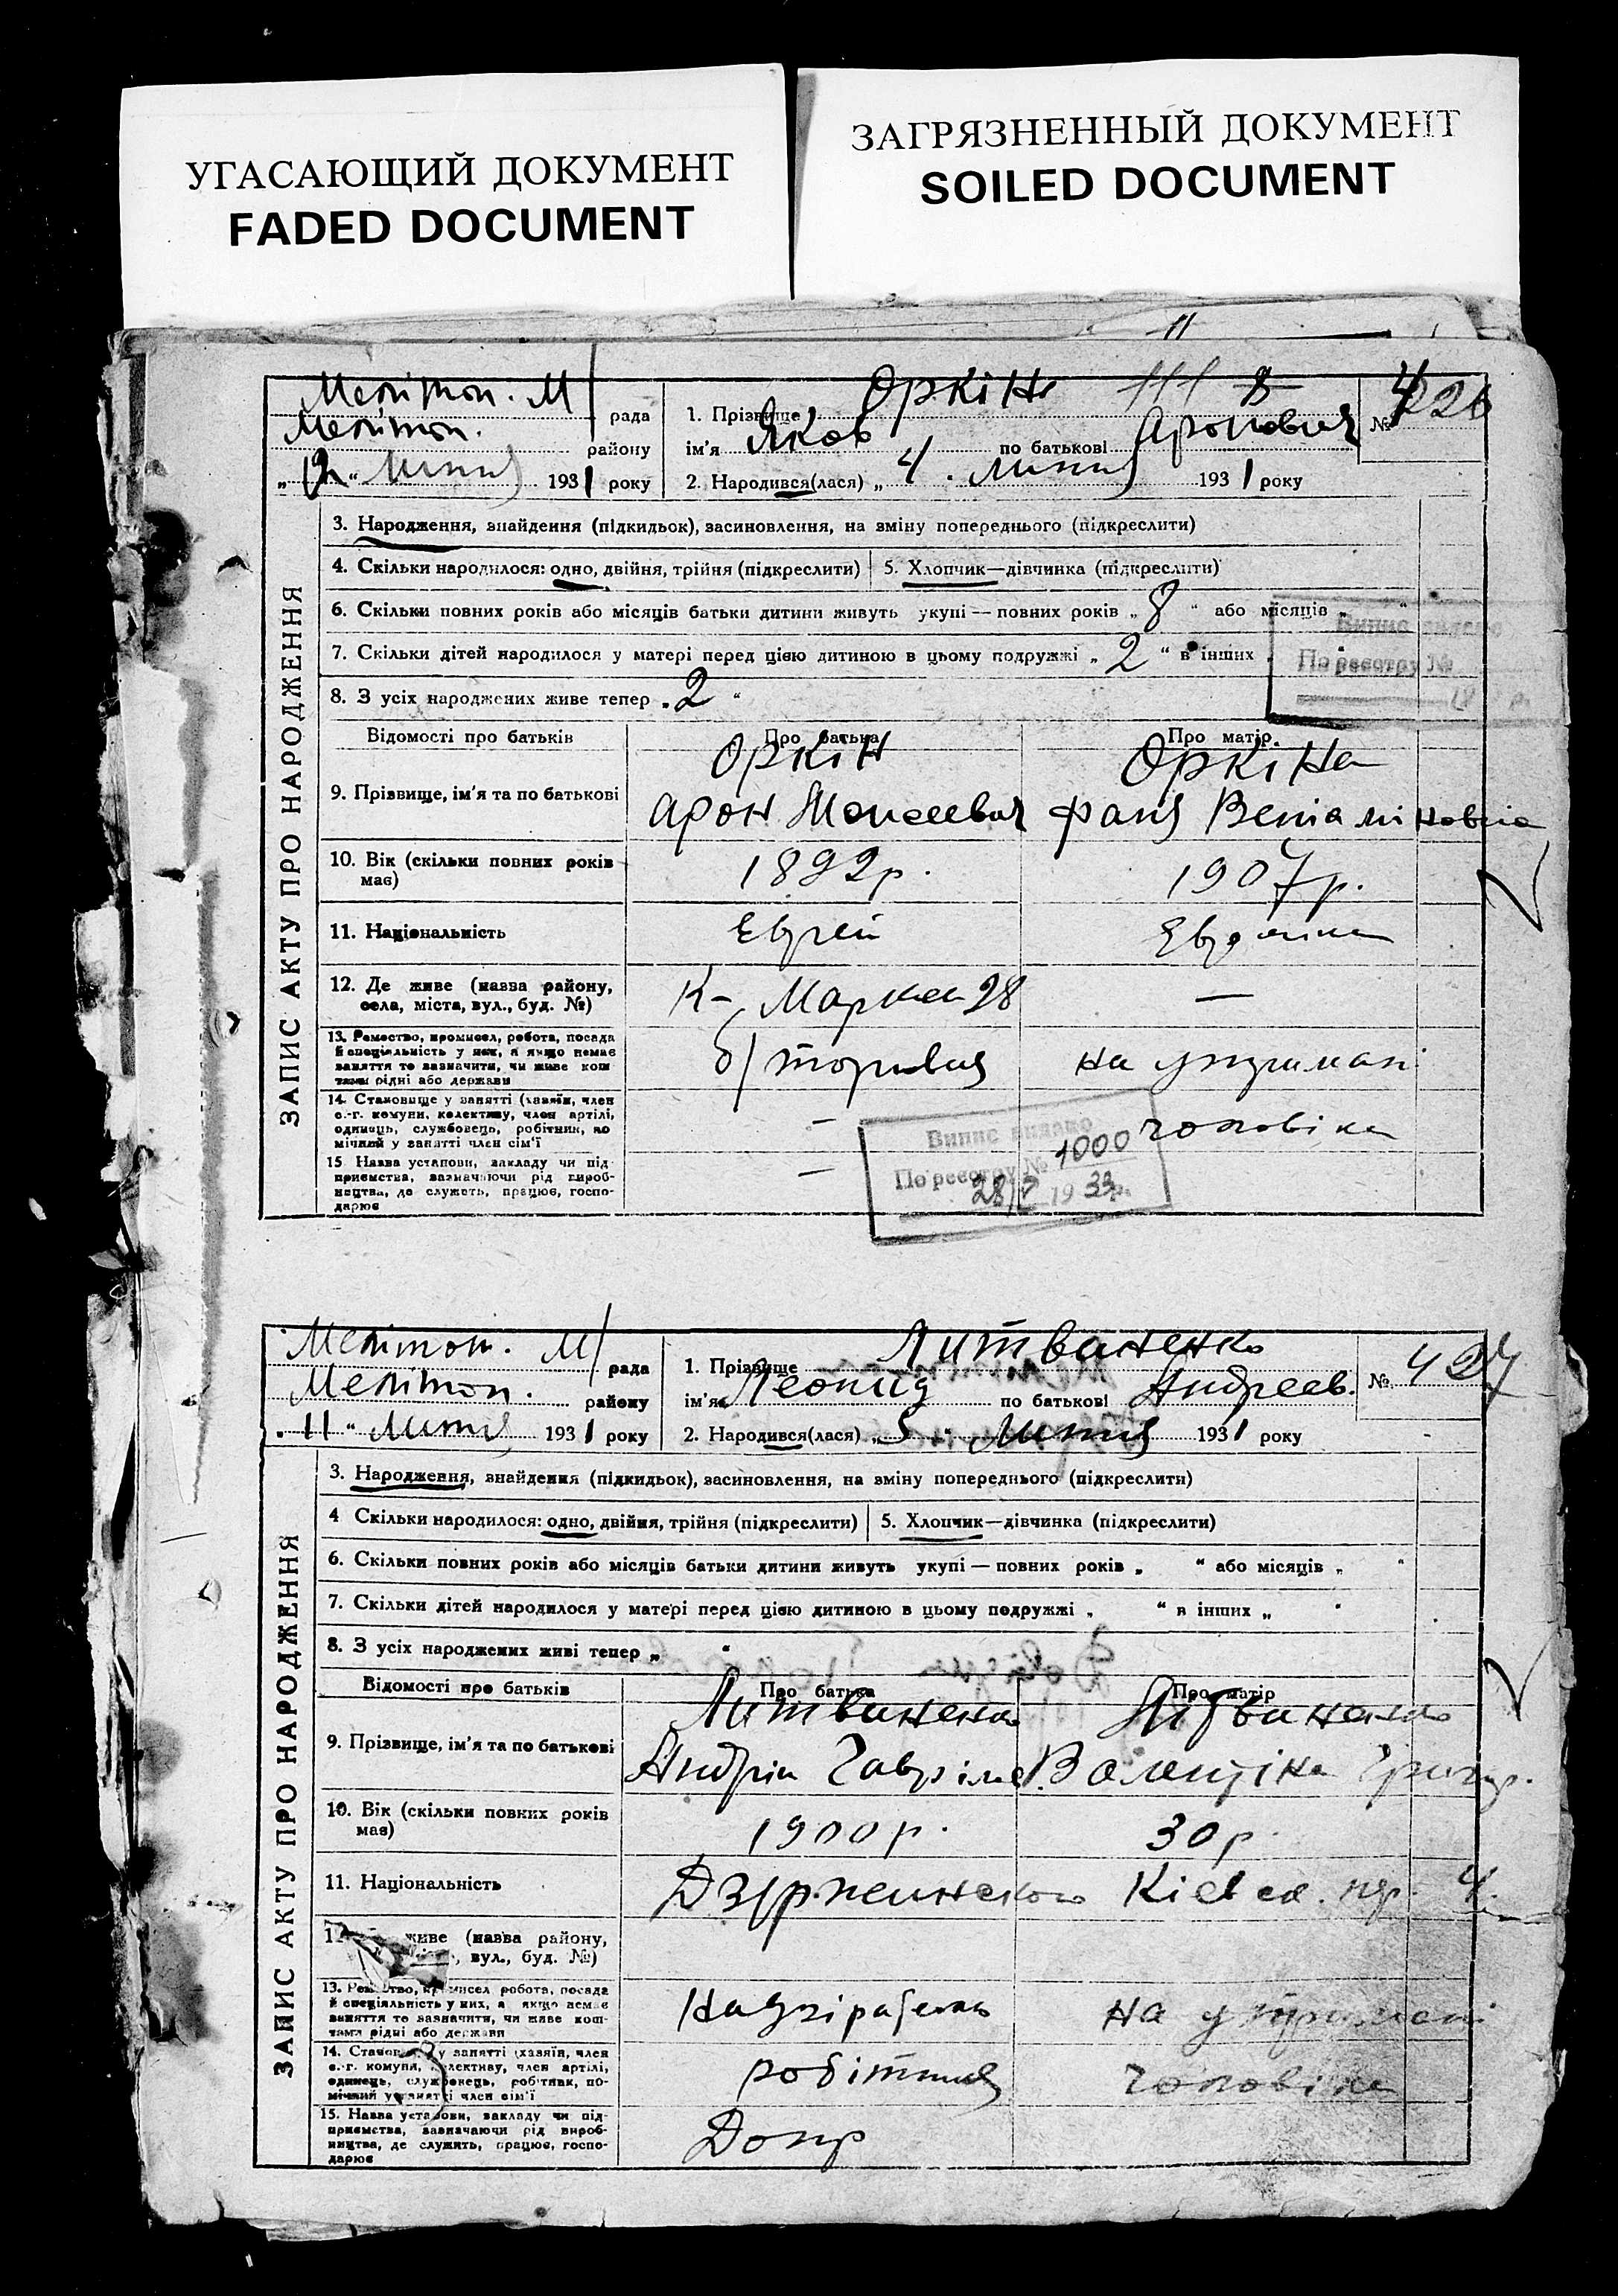 УГАСАЮЩИЙ ДОКУМЕНТ
FADED DOCUMENT
ЗАГРЯЗНЕННЫЙ ДОКУМЕНТ
SOILED DOCUMENT
ЗАПИС АКТУ ПРО НАРОДЖЕННЯ
Мелітоп. М/ рада
Мелітоп. району
„12“ Липня 1931 року
1. Прізвище Оркін
ім'я Яков по батькові Аронович
№ 426
2. Народився(лася) „4. липня 1931 року
3. Народження, знайдення (підкидьок), засиновлення, на зміну попереднього (підкреслити)
4. Скільки народилося: одно, двійня, трійня (підкреслити)
5. Хлопчик—дівчинка (підкреслити)
6. Скільки повних років або місяців батьки дитини живуть укупі — повних років „8“ або місяців „ “
7. Скільки дітей народилося у матері перед цією дитиною в цьому подружжі „2“ в інших
8. З усіх народжених живе тепер „2“
Випис видано
По реєстру №
19 р.
Відомості про батьків Про батька Про матір
9. Прізвище, ім'я та по батькові
Оркін
Арон Моисеевич
Оркіна
Фаня Веніаміновна
10. Вік (скільки повних років має)
1892р. 1907р.
11. Національність
Еврей Еврейка
12. Де живе (назва району, села, міста, вул., буд. №)
К-Маркса 28 —
13. Ремество, промисел, робота, посада
й спеціяльність у них, а якщо немає
заняття то зазначити, чи живе кош
тами рідні або держави
б/торговця на утриман.
14. Становище у занятті (хазяїн, член
с.-г. комуни, колективу, член артілі,
одинець, службовець, робітник, по
мічний у занятті член сім'ї
— чоловіка
15 Назва установи, закладу чи під-
приємства, зазначаючи рід вироб-
ництва, де служить, працює, госпо-
дарює
—
Випис видано
По реєстру № 1000
1933р.
ЗАПИС АКТУ ПРО НАРОДЖЕННЯ
Мелітоп. М/ рада
Мелітоп. району
„11“ Липня 1931 року
1. Прізвище Литвиненко
ім'я Леонид по батькові Андреев.
№ 427
2. Народився(лася) „5“ Липня 1931 року
3. Народження, знайдення (підкидьок), засиновлення, на зміну попереднього (підкреслити)
4 Скільки народилося: одно, двійня, трійня (підкреслити)
5. Хлопчик—дівчинка (підкреслити)
6. Скільки повних років або місяців батьки дитини живуть укупі — повних років „ “ або місяців „ “
7. Скільки дітей народилося у матері перед цією дитиною в цьому подружжі „ “ в інших „ “
8. З усіх народжених живі тепер „ “
Відомості про батьків Про батька Про матір
9. Прізвище, ім'я та по батькові
Литвиненко
Андрій Гавріл.
Литвиненко
Валентіна Григор.
10. Вік (скільки повних років має)
1900р. 30р.
11. Національність
Дзержинського Кіевск. пр. 4.
живе (назва району,
вул., буд. №)
13. Ремество, промисел робота, посада
й спеціяльність у них, а якщо немає
заняття то зазначити, чи живе кош-
тами рідні або держави
Надзіратель на утримані
14. Становище у занятті (хазяїн, член
с.-г. комуни, колективу, член артілі,
одинець, службовець, робітник, по-
мічний у занятті член сім'ї
робітник чоловіка
15. Назва установи, закладу чи під-
приємства, зазначаючи рід вироб-
ництва, де служить, працює, госпо-
дарює
Допр